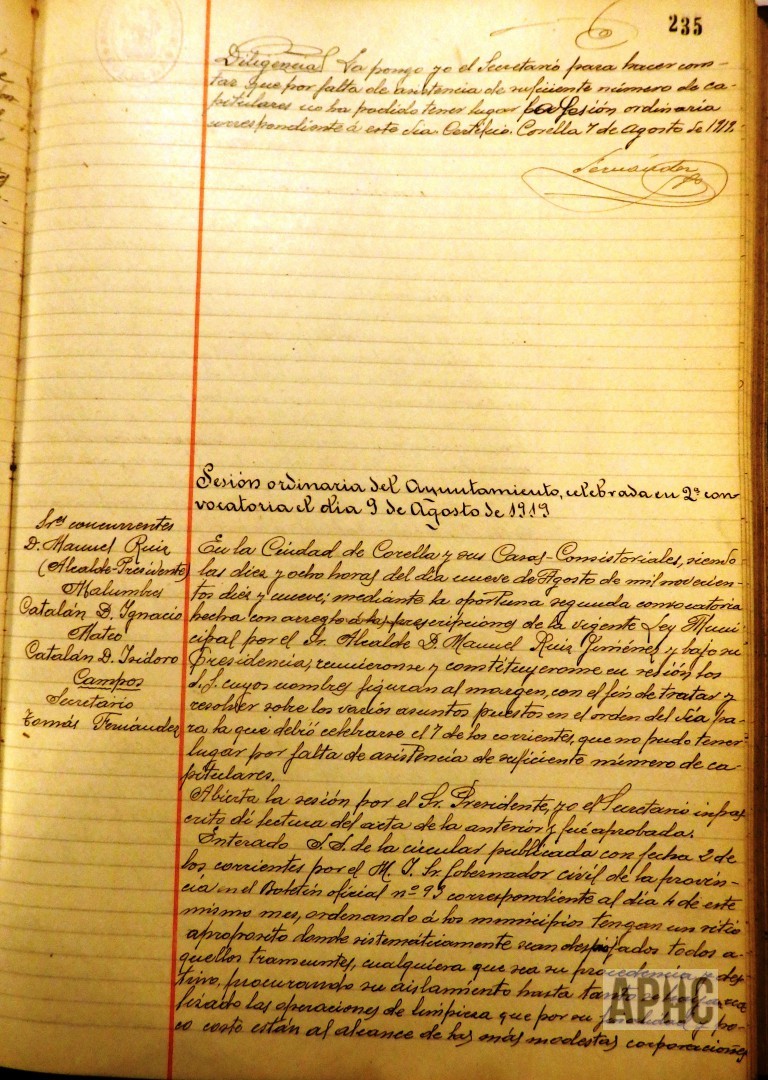 235
Diligencia La pongo yo el Secretario para hacer cons-
tar que por falta de asistencia de suficiente número de ca-
pitulares no ha podido tener lugar la sesión ordinaria
correspondiente á este día. Certifico. Corella 7 de Agosto de 1919.
Fernández
Sesión ordinaria del Ayuntamiento, celebrada en 2ª con-
vocatoria el día 9 de Agosto de 1919
Srs concurrentes
D. Manuel Ruiz
(Alcalde-Presidente)
Malumbres
Catalán D. Ignacio
Mateo
Catalán D. Isidoro
Campos
Secretario
Tomás Fernández
En la Ciudad de Corella y sus Casas-Consistoriales, siendo
las diez y ocho horas del día nueve de Agosto de mil novecien-
tos diez y nueve; mediante la oportuna segunda convocatoria
hecha con arreglo á las prescripciones de la vigente Ley Muni-
cipal por el Sr. Alcalde D. Manuel Ruiz Jiménez y bajo su
Presidencia, reunieronse y constituyeronse en sesión los
S.S. cuyos nombres figuran al margen, con el fin de tratar y
resolver sobre los varios asuntos puestos en el orden del día pa-
ra la que debió celebrarse el 7 de los corrientes, que no pudo tener
lugar por falta de asistencia de suficiente número de ca-
pitulares.
Abierta la sesión por el Sr. Presidente, yo el Secretario infras-
crito dí lectura del acta de la anterior y fué aprobada.
Enterado S.S. de la circular publicada con fecha 2 de
los corrientes por el M. I. Sr. Gobernador civil de la provin-
cia en el Boletín oficial nº 93 correspondiente al día 4 de este
mismo mes, ordenando á los municipios tengan un sitio
apropósito donde sistemáticamente sean despiojados todos a-
quellos transeuntes, cualquiera que sea su procedencia y des-
tino, procurando su aislamiento hasta tanto se haya rea-
lizado las operaciones de limpieza que por su y po-
co coste están al alcance de las más modestas corporaciones
APHC